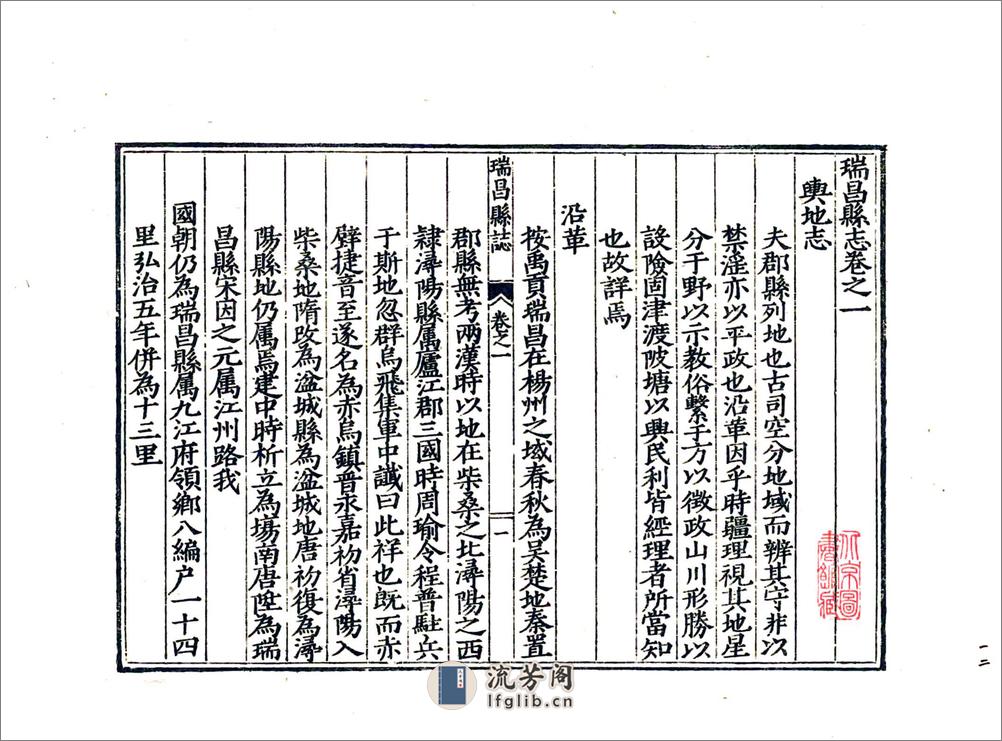 瑞昌縣志卷之一
輿地志
夫郡縣列地也古司空分地域而辨其守非以
禁滛亦以平政也沿革因乎時疆理視其地星
分于野以示教俗繫于方以徵政山川形勝以
設險固津渡陂塘以興民利皆經理者所當知
也故詳焉
沿革
按禹貢瑞昌在楊州之域春秋為吴楚地秦置
瑞昌縣誌
卷之一
一
郡縣無考兩漢時以地在柴桑之北潯陽之西
隸潯陽縣属廬江郡三國時周瑜令程普駐兵
于斯地忽群烏飛集軍中讖曰此祥也既而赤
壁捷音至遂名為赤烏鎮晋永嘉初省潯陽入
柴桑地隋改為湓城縣為湓城地唐初復為潯
陽縣地仍属焉建中時析立為塲南唐陞為瑞
昌縣宋因之元属江州路我
國朝仍為瑞昌縣属九江府領鄉八編户一十四
里弘治五年併為十三里
北京圖
書館藏
一二
流芳阁
lfglib.cn